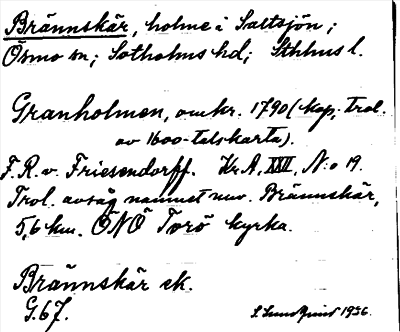 Brännskär, holme i Saltsjön;
Ösmo sn; Sotholms hd; Sthlms l.
Granholmen, omkr. 1790 (kop, trol.
av 1600-talskarta).
F.R. v. Friesendorff. Kr.A, XXII, N:o 19.
Trol. avsåg namnet nuv. Brännskär,
5,6 km. ÖNÖ Torö kyrka.
Brännskär ek.
G.67.
1936.